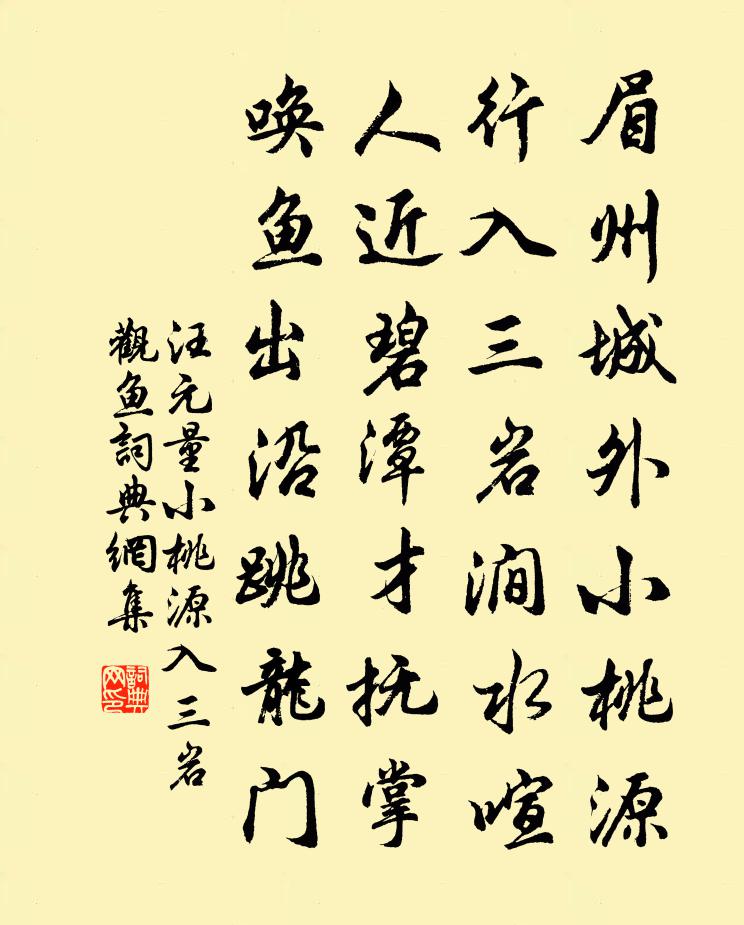 眉州城外小桃源
行入三岩涧水喧
人近碧潭才抚掌
唤鱼出沿跳龍门
汪元量小桃源入三岩
觀鱼詞典網集
詞典
网印